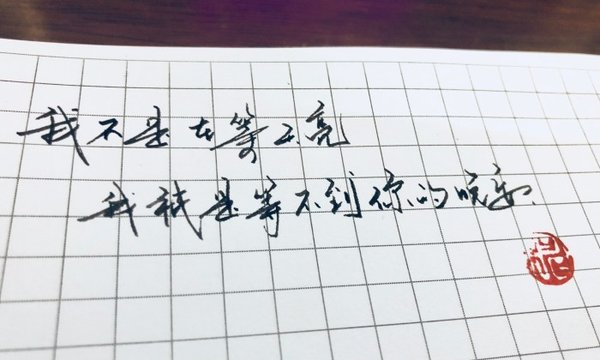 我不是在等天亮
我祗是等不到你的晚安